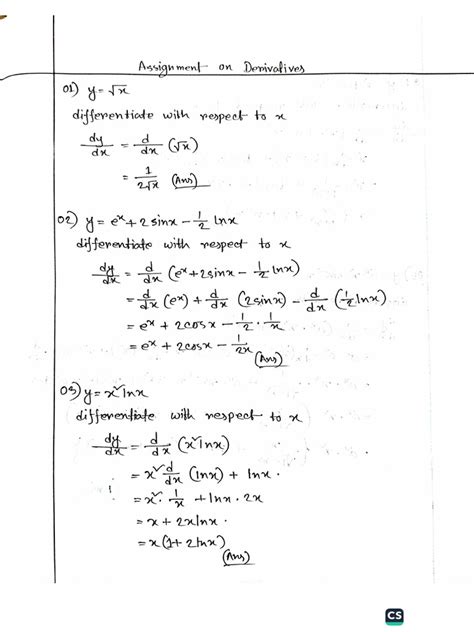 Assignment on Derivatives
01) y = √x
differentiate with respect to x
dy/dx = d/dx (√x)
= 1/2√x (Ans)
02) y = eˣ + 2 sinx - 1/2 lnx
differentiate with respect to x
dy/dx = d/dx (eˣ + 2sinx - 1/2 lnx)
= d/dx (eˣ) + d/dx (2sinx) - d/dx (1/2 lnx)
= eˣ + 2cosx - 1/2 · 1/x
= eˣ + 2cosx - 1/2x
(Ans)
03) y = x² lnx
differentiate with respect to x
dy/dx = d/dx (x² lnx)
= x² d/dx (lnx) + lnx ·
= x² · 1/x + lnx · 2x
= x + 2x lnx ·
= x (1 + 2lnx)
(Ans)
CS